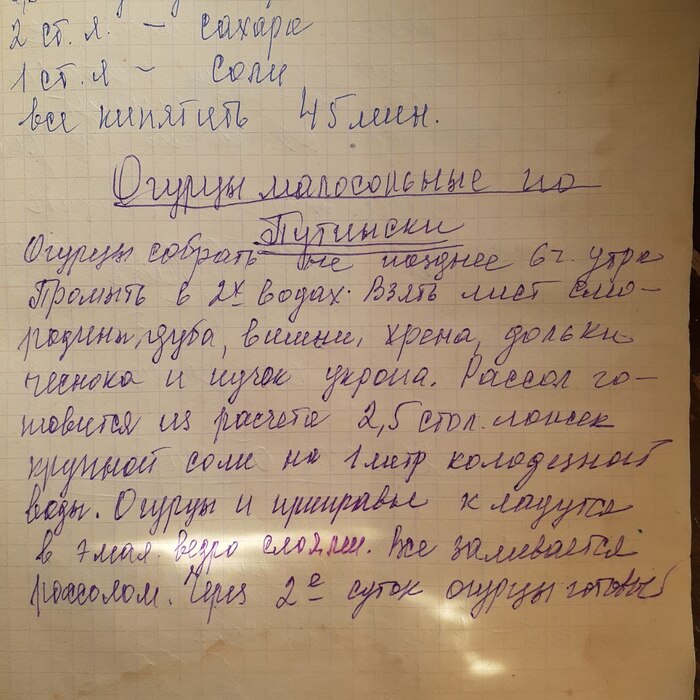 2 ст. л. – сахара
1 ст. л – соли
все кипятить 45 мин.
Огурцы малосольные по
Путински
Огурцы собрать не позднее 6 ч. утра
Промыть в 2х водах. Взять лист смо-
родины, дуба, вишни, хрена, дольки
чеснока и пучок укропа. Рассол го-
товится из расчета 2,5 стол. ложек
крупной соли на 1 литр колодезной
воды. Огурцы и приправы кладутся
в эмал. ведро слоями. Все заливается
рассолом. Через 2е суток огурцы готовы